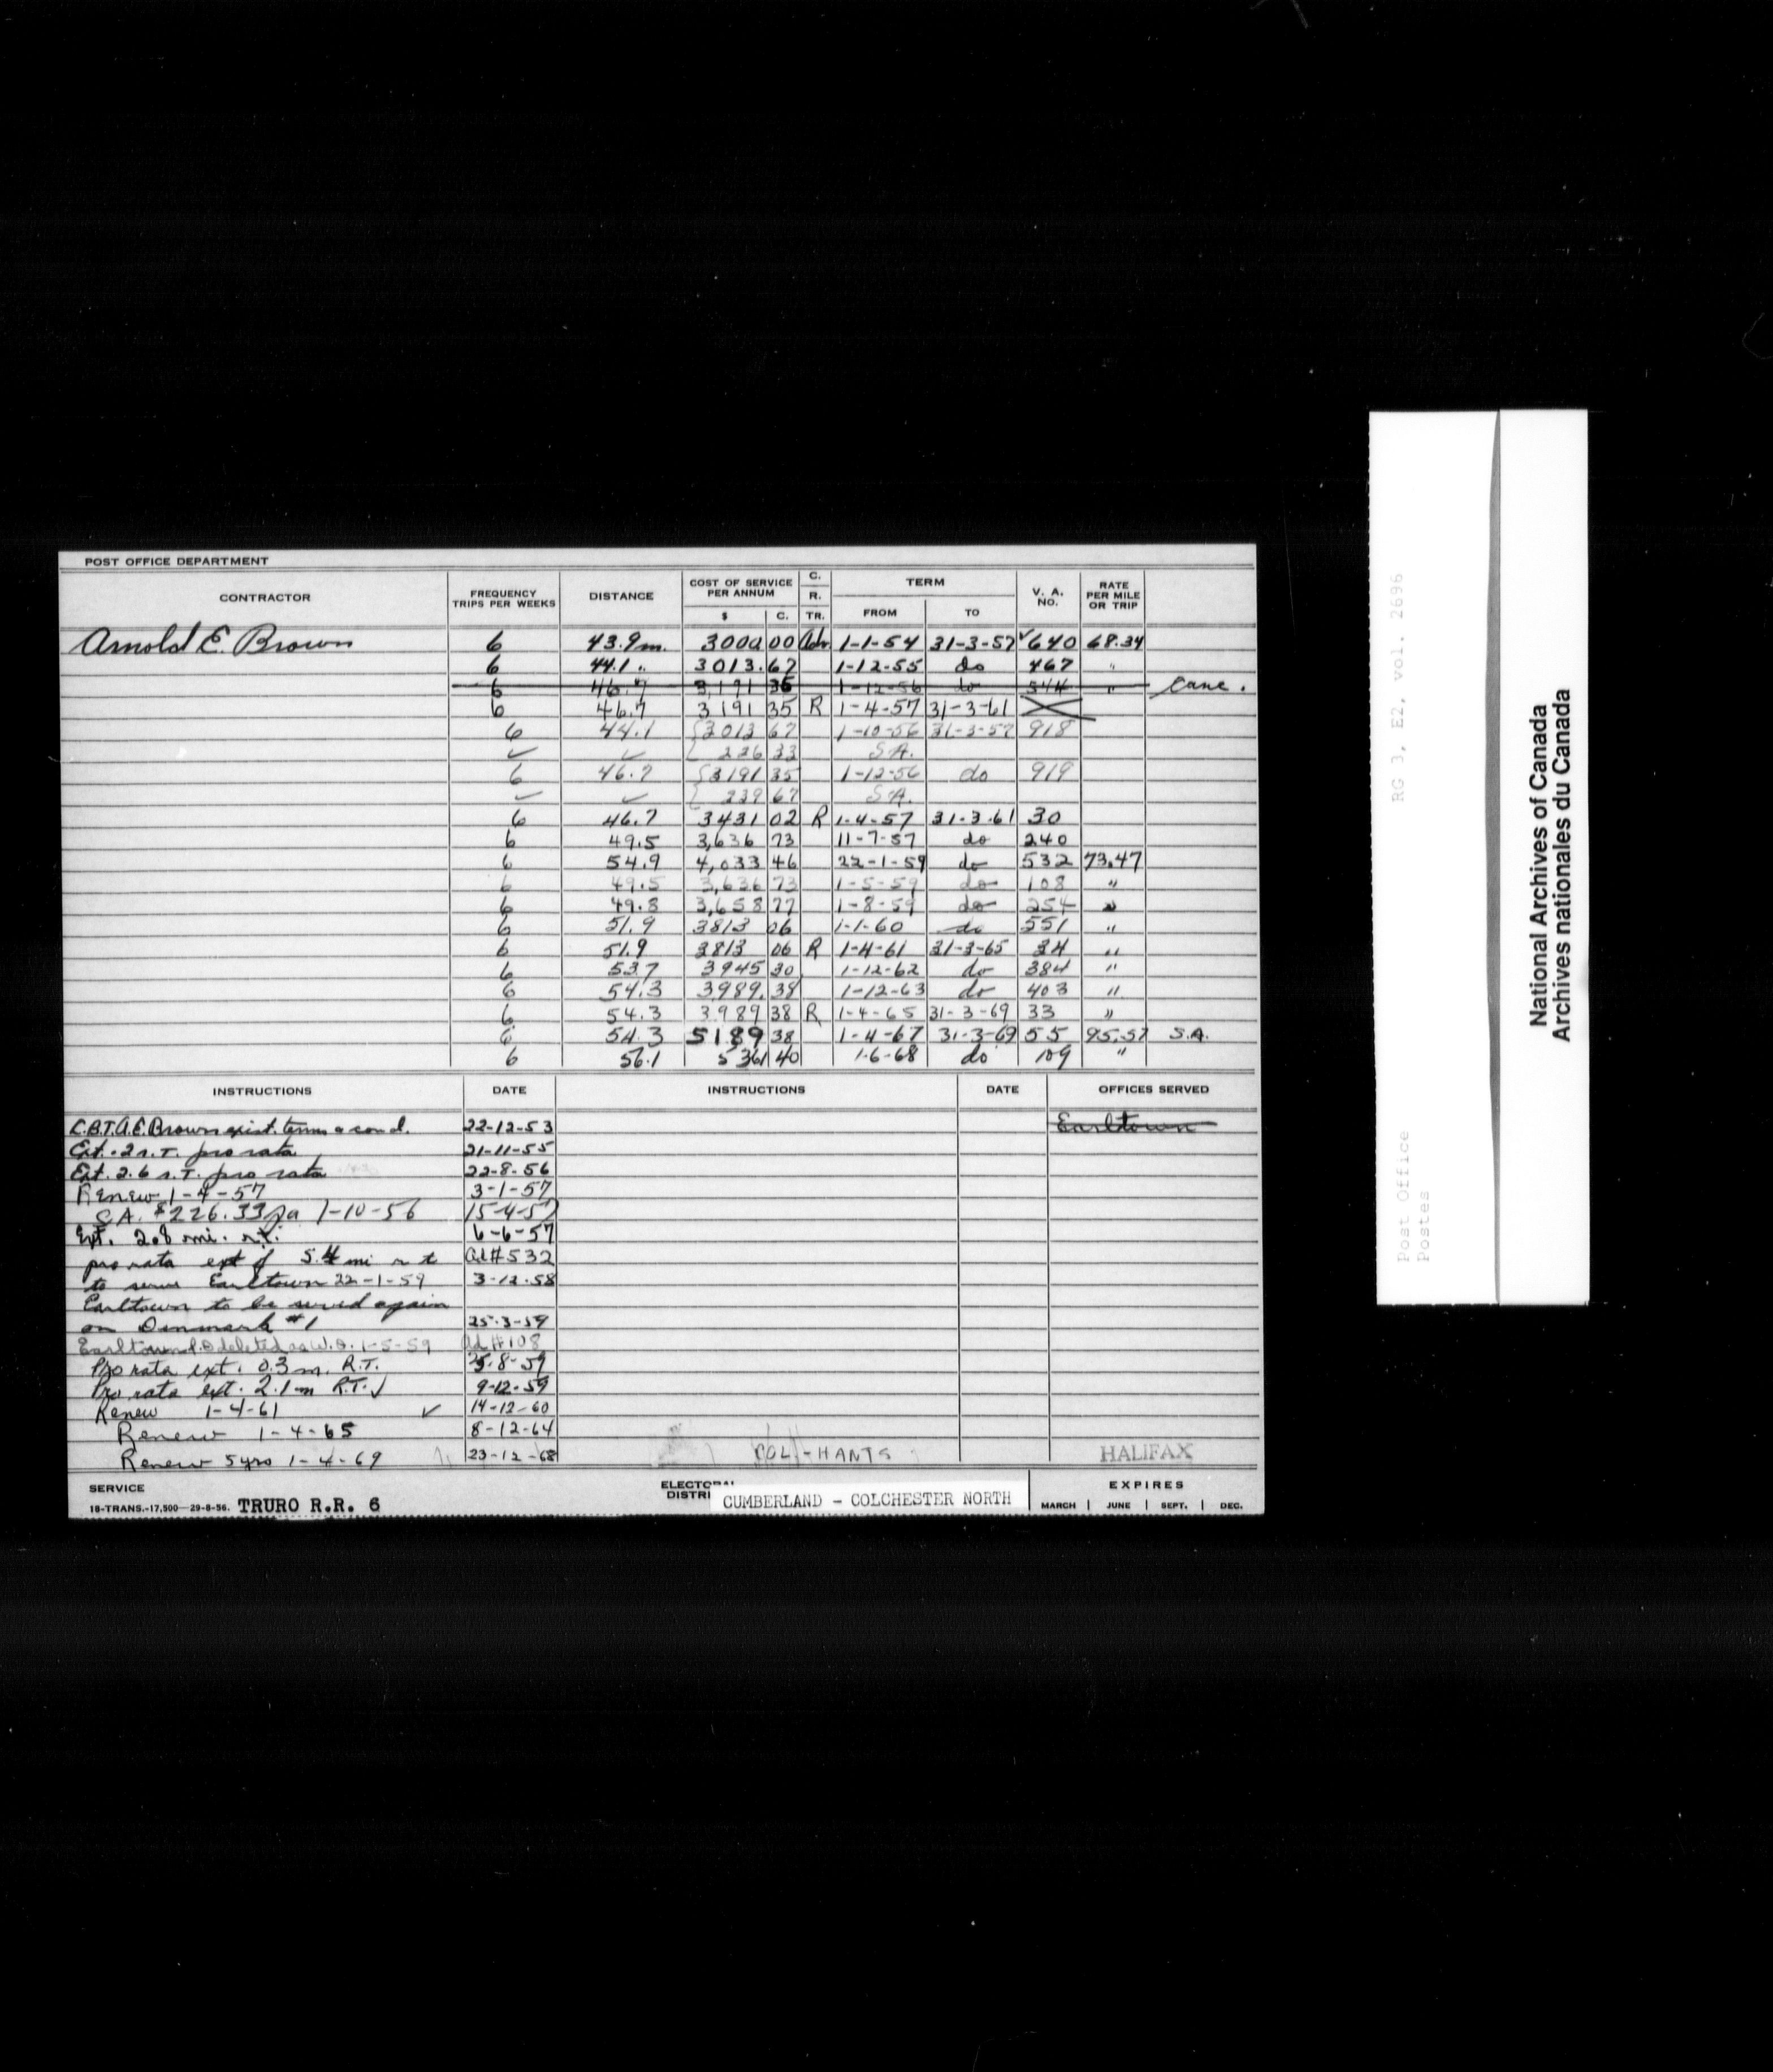 POST OFFICE DEPARTMENT
CONTRACTOR FREQUENCY TRIPS PER WEEKS DISTANCE COST OF SERVICE PER ANNUM $ C. C. R. TR. TERM FROM TO V. A. NO. RATE PER MILE OR TRIP
Arnold E. Brown 6 43.9 m. 3000 00 1-1-54 31-3-57 640 68.34
6 44.1 " 3013.67 1-12-55 do 467 "
6 46.7 3,191 35 1-12-56 do 544 " Canc.
6 46.7 3191 35 R 1-4-57 31-3-61
6 44.1 3013 67 1-10-56 31-3-57 918
✓ ✓ 226 33 S.A.
6 46.7 3191 35 1-12-56 do 919
✓ ✓ 239 67 S.A.
6 46.7 3431 02 R 1-4-57 31-3-61 30
6 49.5 3,636 73 11-7-57 do 240
6 54.9 4,033 46 22-1-59 do 532 73.47
6 49.5 3,636 73 1-5-59 do 108 "
6 49.8 3,658 77 1-8-59 do 254 "
6 51.9 3813 06 1-1-60 do 551 "
6 51.9 3813 06 R 1-4-61 31-3-65 34 "
6 53.7 3945 30 1-12-62 do 384 "
6 54.3 3989.39 1-12-63 do 403 "
6 54.3 3989 38 R 1-4-65 31-3-69 33 "
6 54.3 5189 38 1-4-67 31-3-69 55 95.57 S.A.
6 56.1 5361 40 1-6-68 do 109 "
INSTRUCTIONS DATE INSTRUCTIONS DATE OFFICES SERVED
C.B.T. A.E. Brown exist. terms & cond. 22-12-53 Earltown
Ext. .2 r.T. pro rata 21-11-55
Ext. 2.6 r.T. pro rata 22-8-56
Renew 1-4-57 3-1-57
S.A. $226.33 pa 1-10-56 15-4-57
Ext. 2.8 mi. r.t. 6-6-57
pro rata ext of 5.4 mi r t Ad#532
to serve Earltown 22-1-59 3-12-58
Earltown to be served again
on Denmark #1 25-3-59
Earltown P.O deleted as W.O. 1-5-59 Ad #108
Pro rata ext. 0.3 m. R.T. 25-8-59
Pro rata ext. 2.1 m R.T. ✓ 9-12-59
Renew 1-4-61 ✓ 14-12-60
Renew 1-4-65 8-12-64
Renew 5 yrs 1-4-69 23-12-68 COL-HANTS HALIFAX
SERVICE ELECTORAL DISTRI EXPIRES
18-TRANS.-17,500-29-8-56. TRURO R.R. 6 CUMBERLAND - COLCHESTER NORTH MARCH JUNE SEPT. DEC.
RG 3, E2, vol. 2696
Post Office
Postes
National Archives of Canada
Archives nationales du Canada